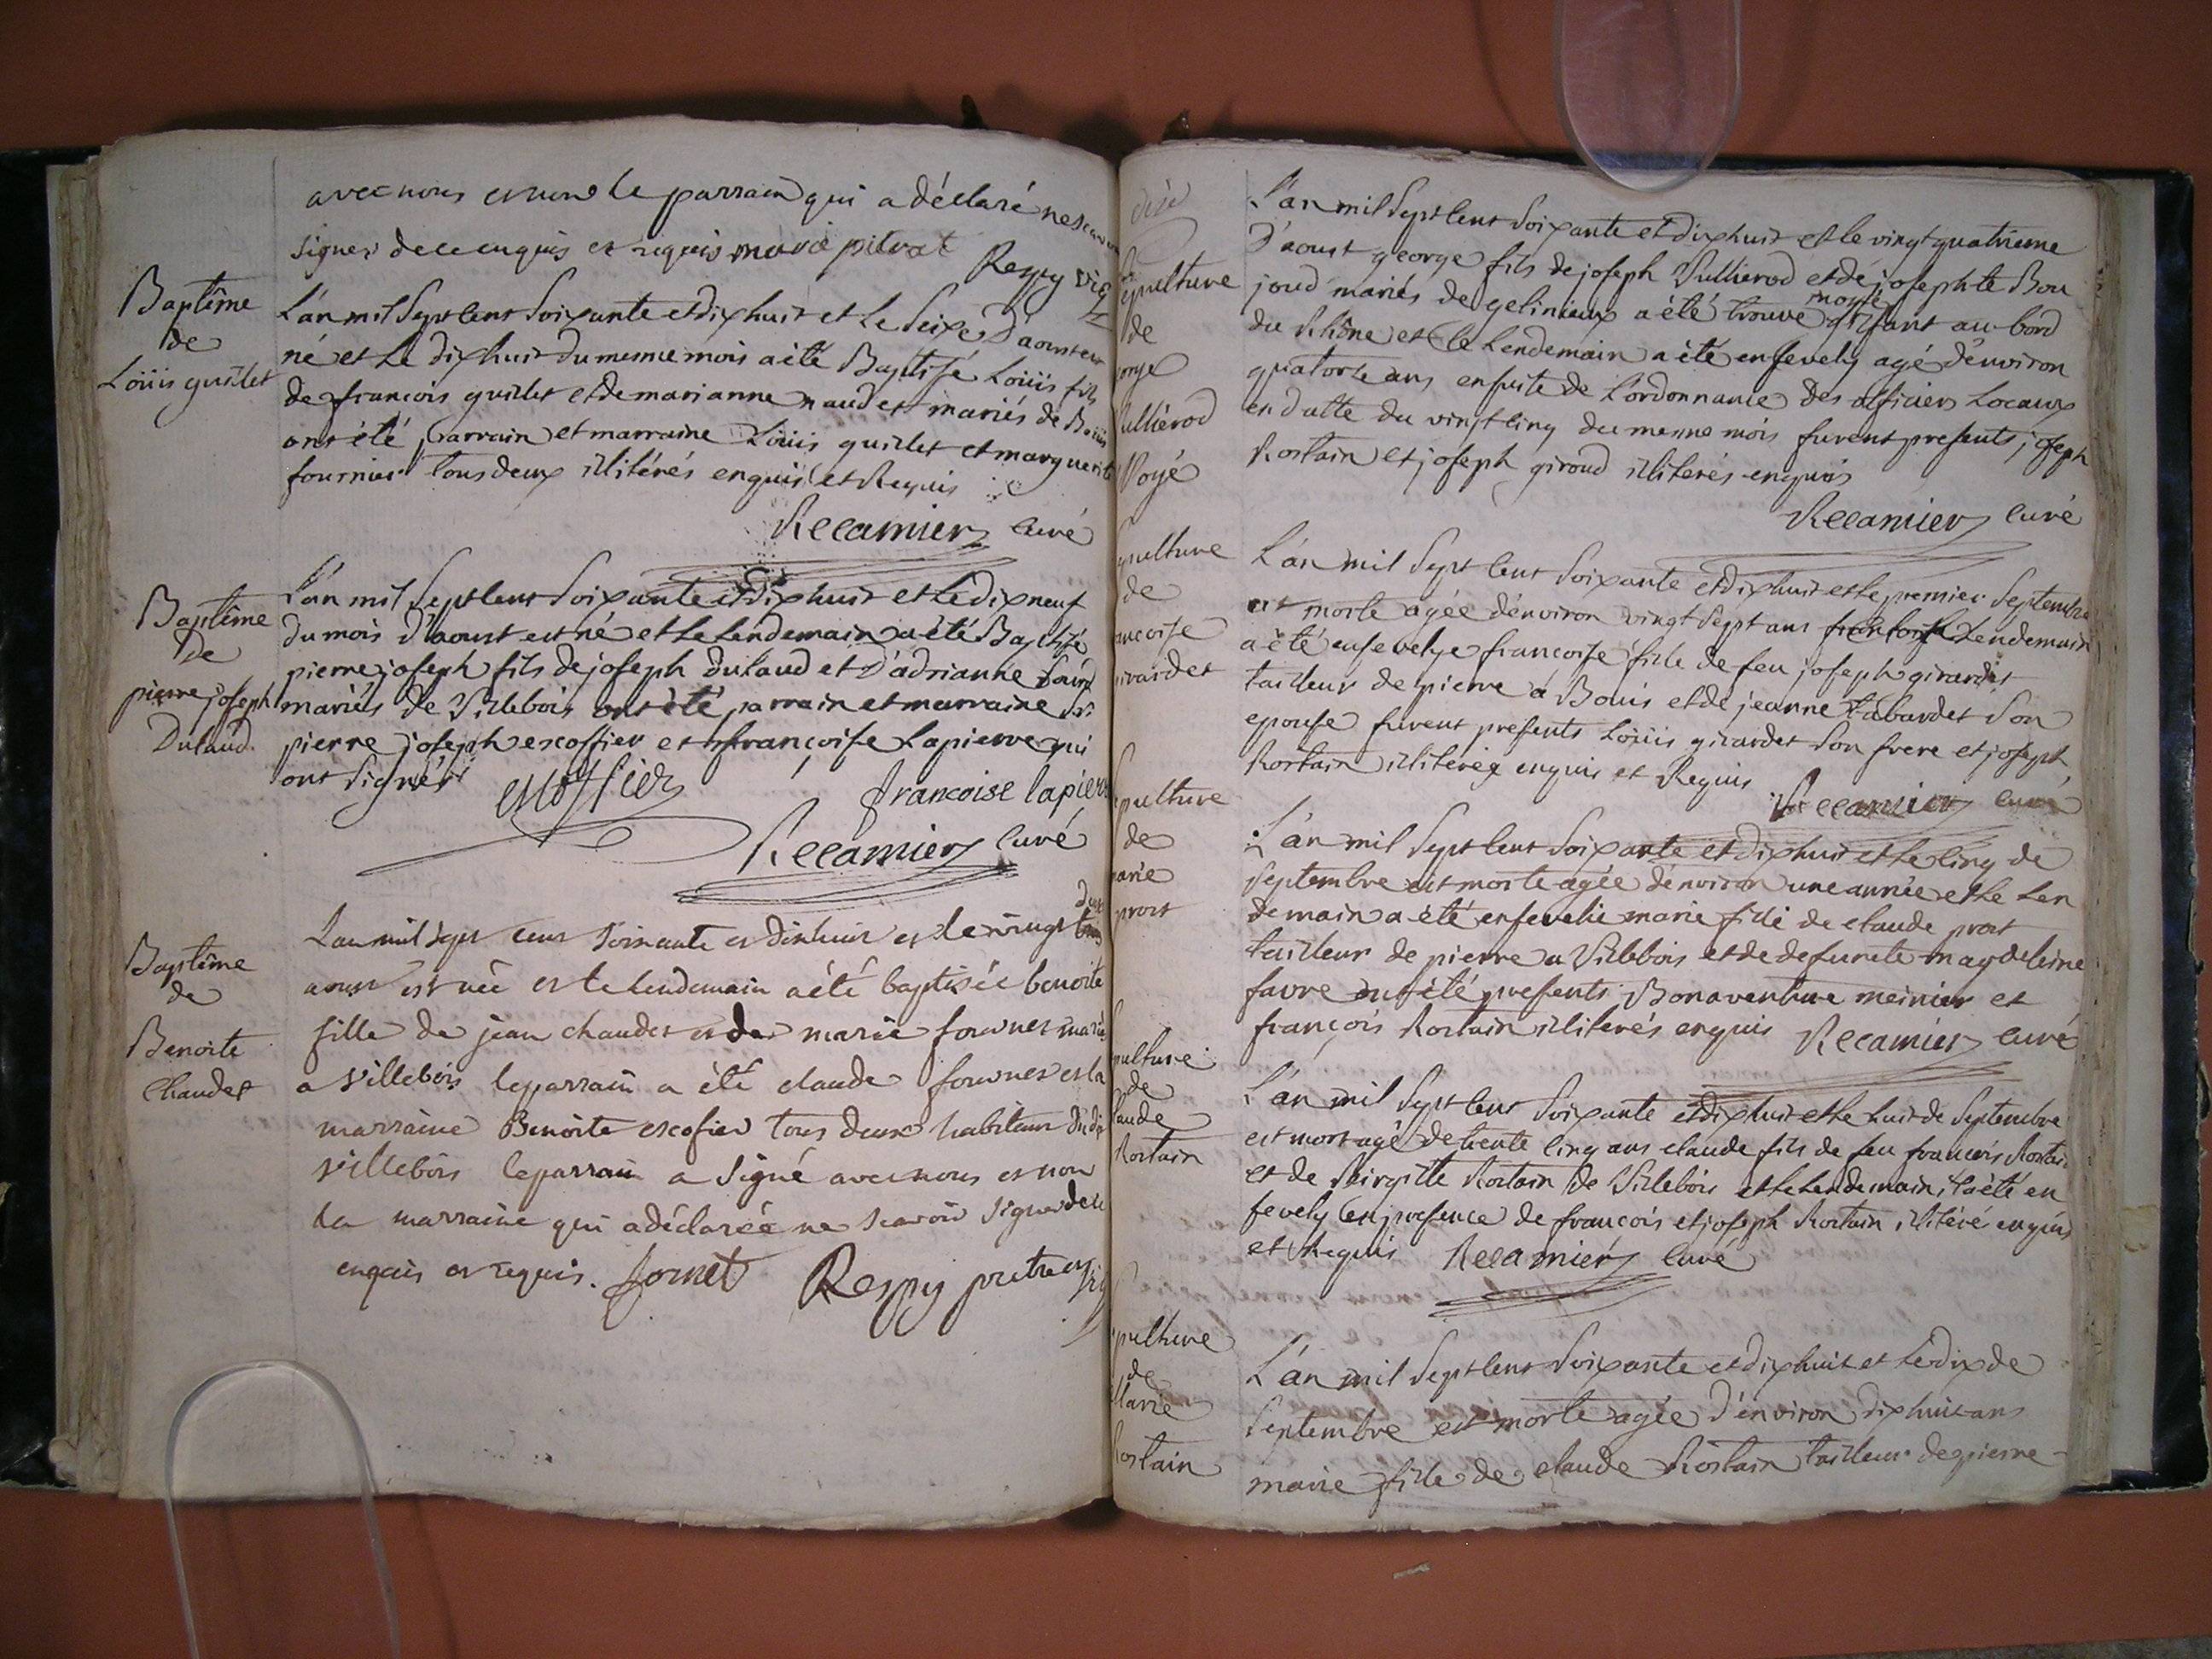 avec nous et non le parrain qui a déclaré ne scavoir
signer de ce enquis et requis marie pitrat
Respy vic
Baptême
de
Loüis guillet
L'án mil Sept Cent Soixante et dix huit et Le Seize D'aoust est
né et Le dix huit du mesme mois a été Baptisé Loüis fils
de francois guillet et de marianne naudet mariés de Boüis
ont été parrain et marraine Loüis guillet et marguerite
fournier tous deux illitérés enquis et Requis
Récamier Curé
Baptême
De
pierre joseph
Dulaud.
L'án mil Sept Cent Soixante et Dix huit et Le dix neuf
du mois D'aoust est né et Le Lendemain a été Baptisé
pierre joseph fils de joseph Dulaud et D'adrianne
mariés de Villebois ont été parrain et marraine Sr.
pierre joseph escoffier et françoise Lapierre qui
ont Signés
escoffier
francoise lapierre
Récamier Curé
Baptême
de
Benoite
Chaudet
deux
Lan mil sept cent soixante et dixhuit et le vingt
aoust est née et le lendemain a été baptisée benoite
fille de jean chaudet et de marie fournet mariés
a Villebois le parrain a été claude fournet et la
marraine Benoite escofier tous deux habitans dudit
villebois le parrain a signé avec nous et non
la marraine qui a déclarée ne scavoir signer de ce
enquis et requis. fornet Respy prêtre et vic
Sépulture
de
george
Vulliérod
Noyé
L'án mil Sept Cent Soixante et Dix huit et le vingt quatrieme
D'aoust george fils de joseph Vulliérod et de josephte Bou
joud mariés de gelinieux a été trouvé morte gissant au bord
du Rhône et Le Lendemain a été ensevely agé d'énviron
quatorze ans ensuite de L'ordonnance des officiers Locaux
en datte du vingt cinq du mesme mois furent presents joseph
Rostain et joseph giroud illiterés enquis
Récamier Curé
Sépulture
de
francoise
girardet
L'án mil Sept Cent Soixante et dix huit et le premier Septembre
est morte agée d'énviron vingt Sept ans Lendemain
a été ensevelye francoise fille de feu joseph girardet
tailleur de pierre a Bouis et de jeanne Tabardet Son
epouse furent presents Loüis girardet Son frere et joseph
Rostain illiteres enquis et Requis
Récamier Curé
Sépulture
de
marie
prost
L'án mil Sept Cent Soixante et Dix huit et Le Cinq de
Septembre est morte agée d'énviron une année et Le Len
demain a été ensevelie marie fille de claude prost
tailleur de pierre a Villebois et de defuncte magdeleine
favre ont été presents Bonaventure meinier et
françois Rostain illiterés enquis Récamier Curé
Sépulture
de
Claude
Rostain
L'án mil Sept Cent Soixante et dix huit et Le huit de Septembre
est mort agé de trente Cinq ans claude fils de feu francois Rostain
et de Rostain de Villebois et Le Lendemain il a été en
sevely en presence de francois et joseph Rostain illitéré enquis
et Requis Récamier Curé
Sépulture
de
Marie
Rostain
L'án mil Sept Cent Soixante et dix huit et Le dix de
Septembre est morte agée D'énviron dix huit ans
marie fille de claude Rostain tailleur de pierre